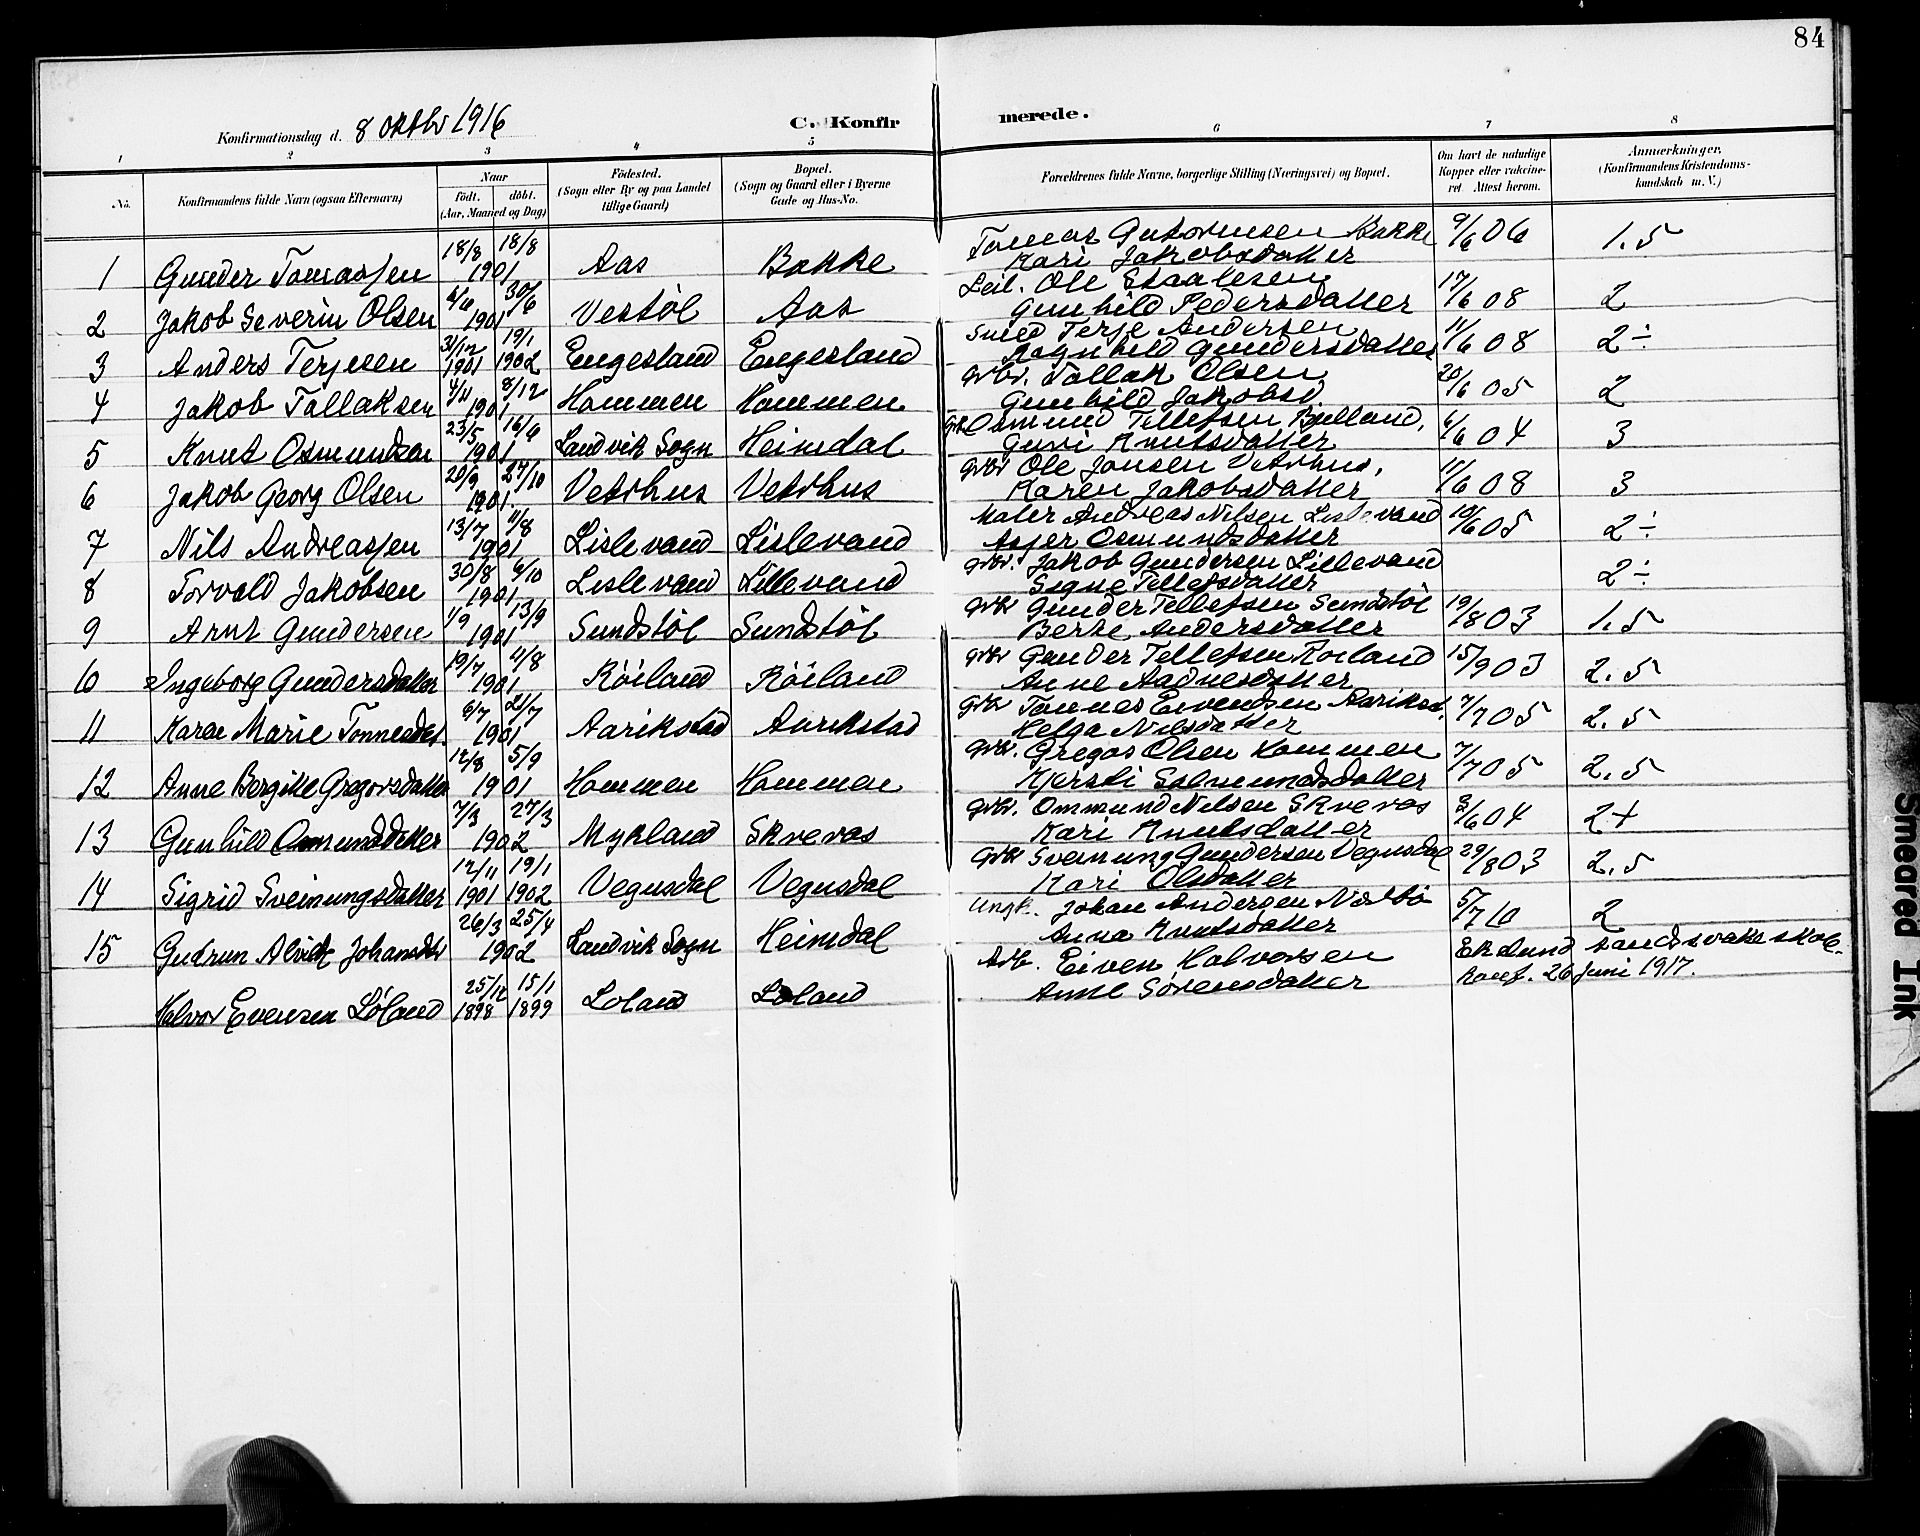 84
Konfirmationsdag d. 8 oktbr 1916 C. Konfirmerede.
1 2 3 4 5 6 7 8
No. Konfirmandens fulde Navn (ogsaa Efternavn) Naar födt. döbt. (Aar, Maaned og Dag) Födested. (Sogn eller By og paa Landet tillige Gaard) Bopæl. (Sogn og Gaard eller i Byerne Gade og Hus-No. Forældrenes fulde Navne, borgerlige Stilling (Næringsvei) og Bopæl. Om havt de naturlige Kopper eller vakcineret Attest herom. Anmærkninger. (Konfirmandens Kristendomskundskab m. V.)
1 Gunder Tomassen 18/8 18/8 1901 Aas Bakke Tomas Gutormsen Bakke Kari Jakobsdatter 9/6 06 1.5
2 Jakob Severin Olsen 30/6 1901 Vestøl Aas Leil. Ole Staalesen Gunhild Pedersdatter 17/6 08 2
3 Anders Terjesen 31/12 1901 19/1 1902 Engesland Engesland Smed Terje Andersen Ragnhild Gundersdatter 11/6 08 2÷
4 Jakob Tallaksen 4/11 8/12 1901 Hommen Hommen Grbr. Tallak Olsen Gunhild Jakobsd 20/6 05 2
5 Knut Osmundsen 23/5 16/6 1901 Landvik Sogn Heimdal Osmund Tellefsen Bjelland, Guri Knutsdatter 6/6 04 3
6 Jakob Georg Olsen 20/9 27/10 1901. Vetrhus Vetrhus Grbr Ole Jansen Vetrhus, Karen Jakobsdatter 11/6 08 3
7 Nils Andreassen 13/7 11/8 1901 Lislevand Lislevand Maler Andreas Nilsen Lislevand Asjer Osmundsdatter 10/6 05 2÷
8 Torvald Jakobsen 30/8 6/10 1901 Lislevand Lillevand Grbr. Jakob Gundersen Lillevand Signe Tellefsdatter 2÷
9 Arnt Gundersen 1/9 13/9 1901 Sundstøl Sundstøl Grbr Gunder Tellefsen Sundstøl Berte Andersdatter 19/8 03 1.5
10 Ingeborg Gundersdatter 19/7 11/8 1901 Røiland Røiland Grbr Gunder Tellefsen Røiland Anne Aadnesdatter 15/9 03 2.5
11 Karen Marie Tonnesdat. 6/7 21/7 1901 Aarikstad Aarikstad Grbr Tønnes Eivendsen Aarikst. Helga Nilsdatter 7/7 05 2.5
12 Anne Bergitte Gregorsdatter 12/8 5/9 1901 Hommen Hommen Grbr. Gregos Olsen Hommen Kjersti Salmundsdatter 7/7 05 2.5
13 Gunhild Omunddatter 7/3 27/3 1902 Mykland Skreros Grbr. Ommund Nilsen Skreros Kari Knutsdatter 3/6 04 2+
14 Sigrid Sveinungsdatter 12/11 1901 19/1 1902 Vegusdal Vegusdal Grbr Sveinung Gundersen Vegusdal Kari Olsdatter 29/8 03 2.5
15 Gudrun Alvide Johansdtr 26/3 25/4 1902 Landvik Sogn Heimdal Ungk. Johan Andersen Anna Knutsdatter 5/7 10 2
Halvor Evensen Løland 25/12 1898 15/1 1899 Løland Løland Arb. Eiven Halvorsen Anne Sørensdatter Eklund aandsvake skole. Konf. 26 juni 1917.
Smeared Ink